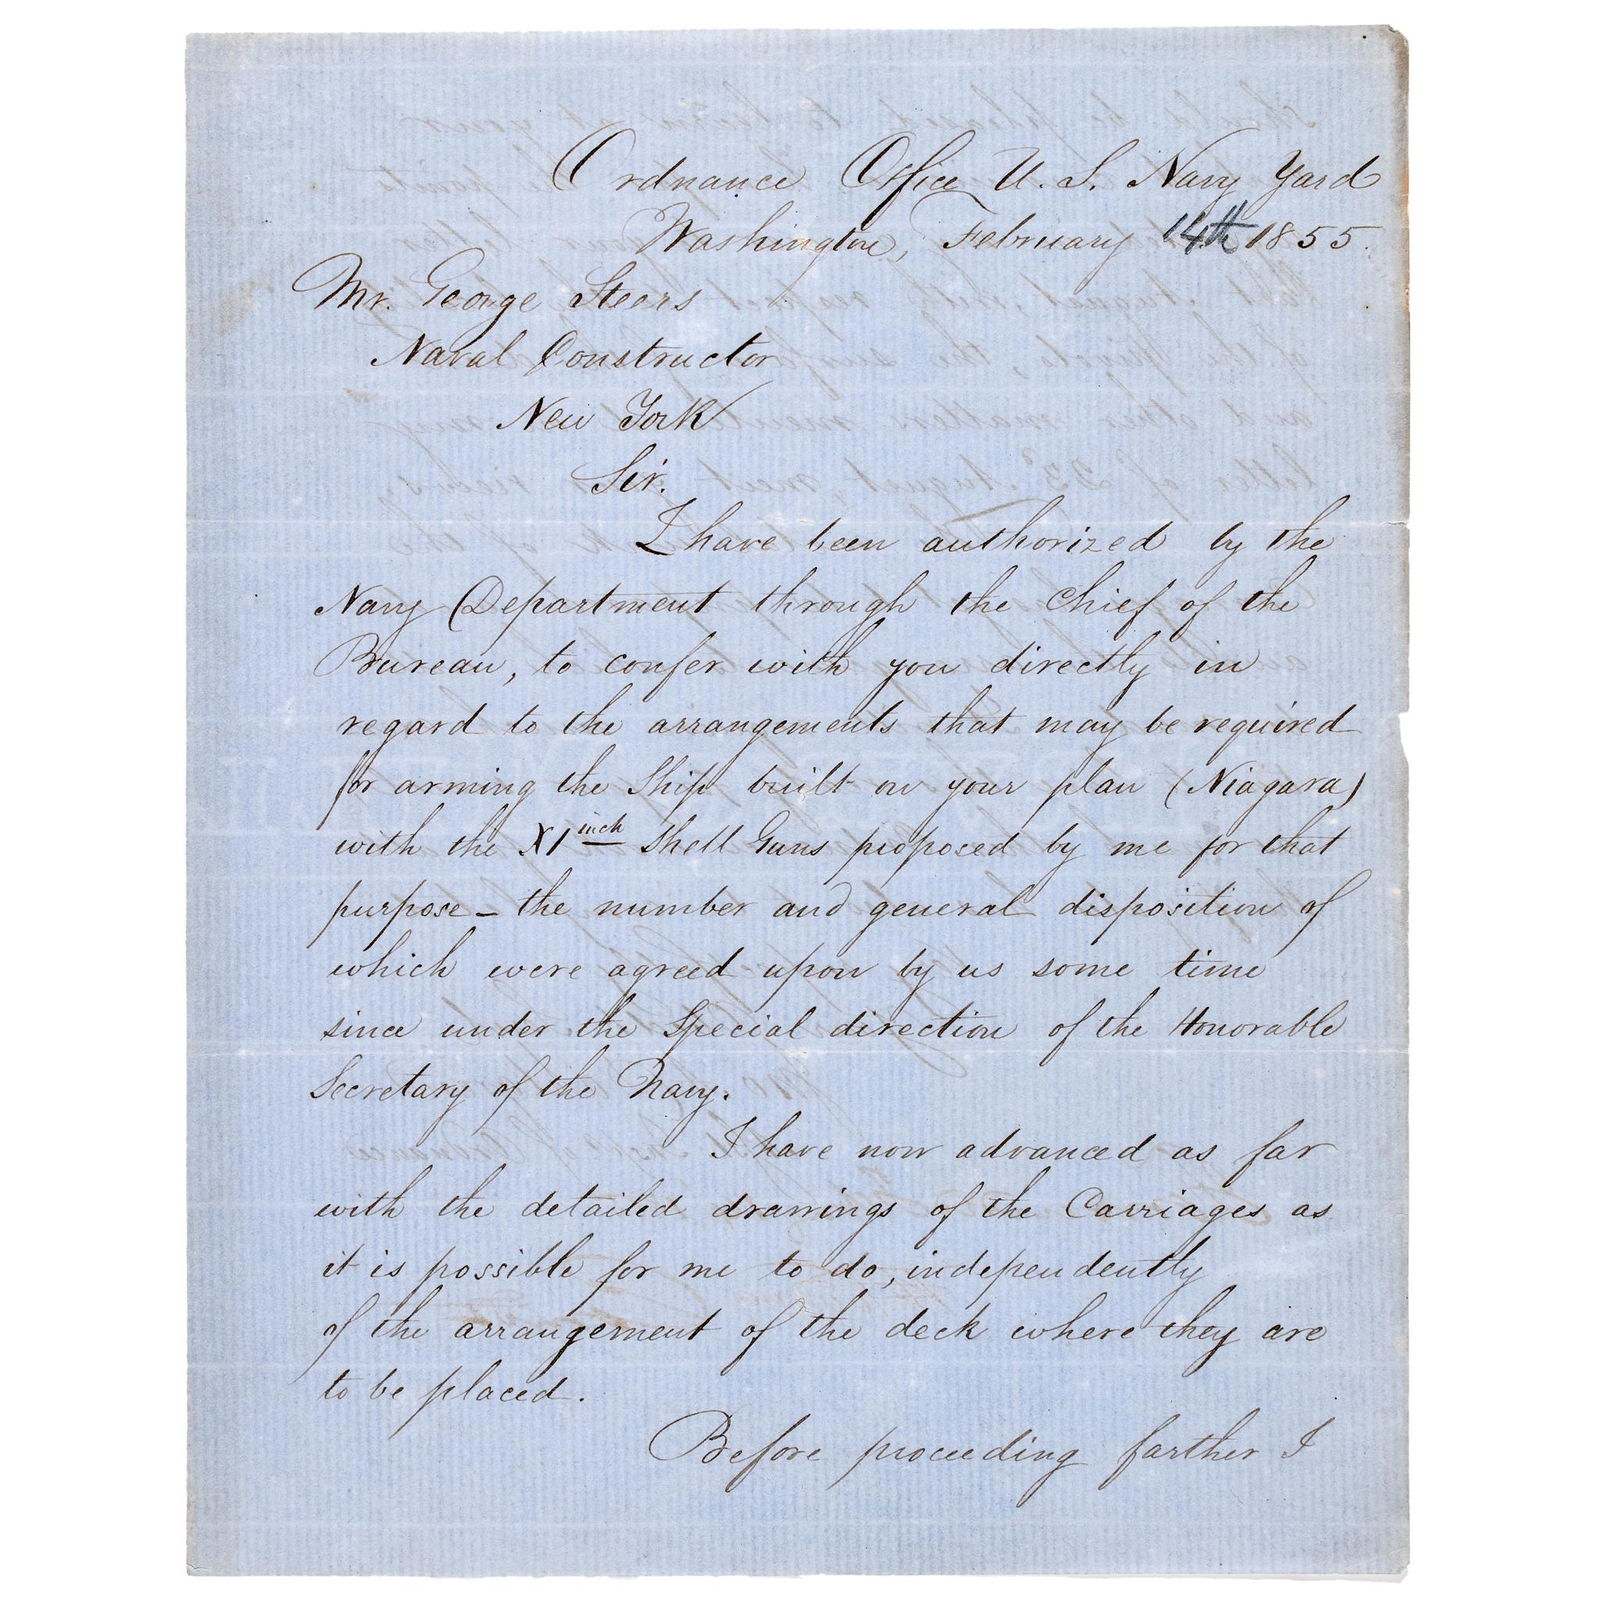 Ordnance Office U. S. Navy Yard
Washington, February 14th 1855.
Mr. George Steers
Naval Constructor
New York
Sir.
I have been authorized by the
Navy Department through the Chief of the
Bureau, to confer with you directly in
regard to the arrangements that may be required
for arming the Ship built on your plan (Niagara)
with the XI inch Shell Guns proposed by me for that
purpose — the number and general disposition of
which were agreed upon by us some time
since under the Special direction of the Honorable
Secretary of the Navy.
I have now advanced as far
with the detailed drawings of the Carriages as
it is possible for me to do, independently
of the arrangement of the deck where they are
to be placed.
Before proceeding farther I